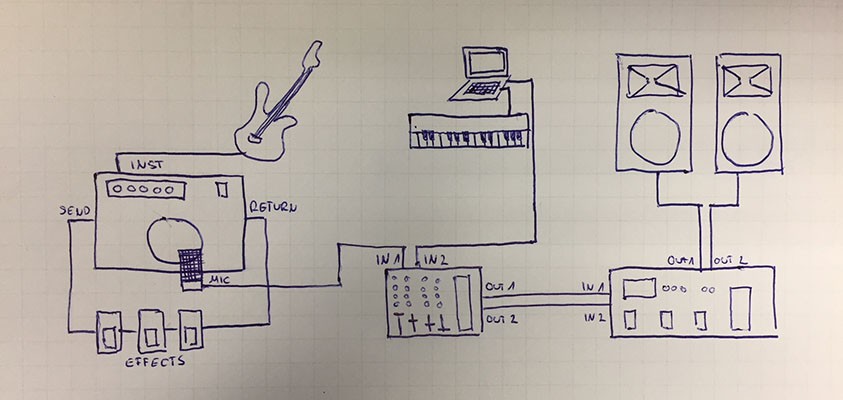 INST
SEND
RETURN
MIC
EFFECTS
IN 1
IN 2
OUT 1
OUT 2
IN 1
IN 2
OUT 1
OUT 2